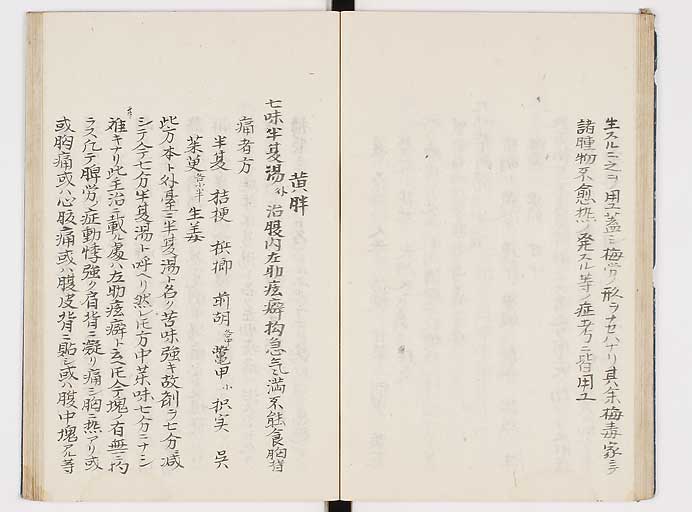 生スルニ之ヲ用ユ蓋シ梅労ノ形ヲナセバナリ其余梅毒家ニテ
諸腫物不愈熱ノ発スル等ノ症者ニ皆用ユ
黄胖
七味半夏湯 外 治腹内左肋痃癖拘急気満不能食胸背
痛者方
半夏 桔梗 梹榔 前胡 各中 鼈甲 小 枳実 呉
茱萸 各小半 生姜
此方本ト外臺ニ半夏湯ト名ク苦味強キ故創ヲ七分ニ減
シテ今七分半夏湯ト呼ヘリ然レ𪜈方中茱味七分ニナシ
雅キナリ此主治ニ載ル處ハ左肋痃癖ト云ヘ𪜈今塊ノ有無ニ拘
ラス凡テ脾労ノ症動悸強ク肩背ニ凝リ痛ミ胸ニ熱アリ或
或胸痛或ハ心腹痛或ハ腹皮背ニ貼シ或ハ腹中塊アル等